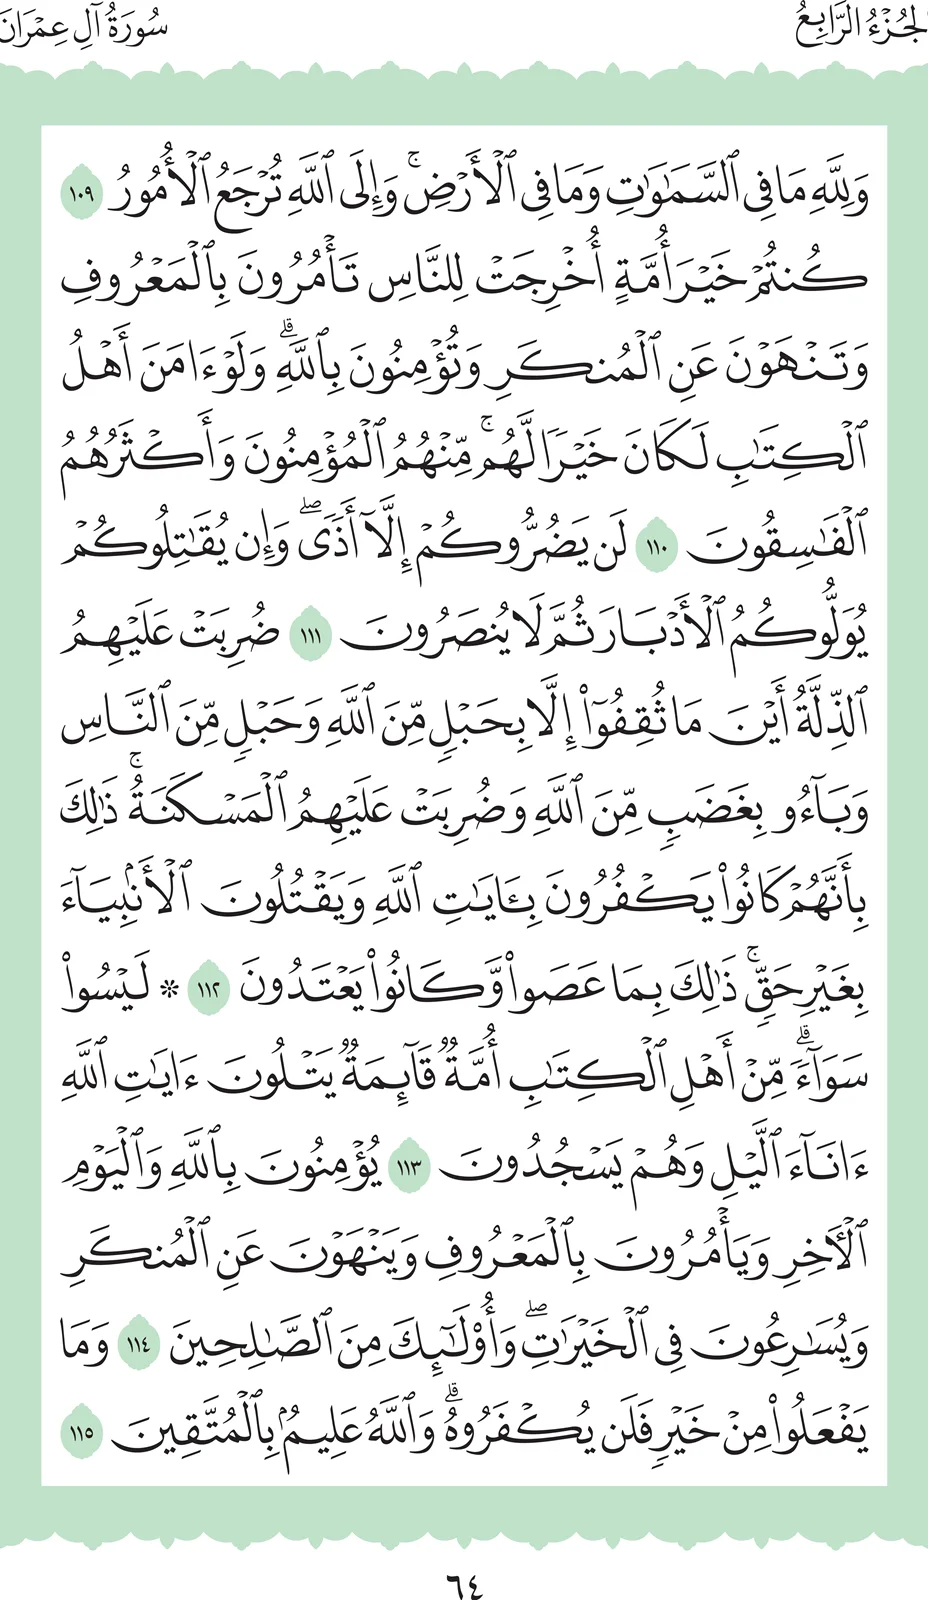 الجُزْءُ الرَّابِعُ
سُورَةُ آلِ عِمْرَانَ
وَلِلَّهِ مَا فِي ٱلسَّمَٰوَٰتِ وَمَا فِي ٱلْأَرْضِۚ وَإِلَى ٱللَّهِ تُرْجَعُ ٱلْأُمُورُ ١٠٩
كُنتُمْ خَيْرَ أُمَّةٍ أُخْرِجَتْ لِلنَّاسِ تَأْمُرُونَ بِٱلْمَعْرُوفِ
وَتَنْهَوْنَ عَنِ ٱلْمُنكَرِ وَتُؤْمِنُونَ بِٱللَّهِۗ وَلَوْ ءَامَنَ أَهْلُ
ٱلْكِتَٰبِ لَكَانَ خَيْرًا لَّهُمۚ مِّنْهُمُ ٱلْمُؤْمِنُونَ وَأَكْثَرُهُمُ
ٱلْفَٰسِقُونَ ١١٠ لَن يَضُرُّوكُمْ إِلَّآ أَذًىۖ وَإِن يُقَٰتِلُوكُمْ
يُوَلُّوكُمُ ٱلْأَدْبَارَ ثُمَّ لَا يُنصَرُونَ ١١١ ضُرِبَتْ عَلَيْهِمُ
ٱلذِّلَّةُ أَيْنَ مَا ثُقِفُوٓا۟ إِلَّا بِحَبْلٍ مِّنَ ٱللَّهِ وَحَبْلٍ مِّنَ ٱلنَّاسِ
وَبَآءُو بِغَضَبٍ مِّنَ ٱللَّهِ وَضُرِبَتْ عَلَيْهِمُ ٱلْمَسْكَنَةُۚ ذَٰلِكَ
بِأَنَّهُمْ كَانُوا۟ يَكْفُرُونَ بِـَٔايَٰتِ ٱللَّهِ وَيَقْتُلُونَ ٱلْأَنۢبِيَآءَ
بِغَيْرِ حَقٍّۚ ذَٰلِكَ بِمَا عَصَوا۟ وَّكَانُوا۟ يَعْتَدُونَ ١١٢ ۞ لَيْسُوا۟
سَوَآءًۗ مِّنْ أَهْلِ ٱلْكِتَٰبِ أُمَّةٌ قَآئِمَةٌ يَتْلُونَ ءَايَٰتِ ٱللَّهِ
ءَانَآءَ ٱلَّيْلِ وَهُمْ يَسْجُدُونَ ١١٣ يُؤْمِنُونَ بِٱللَّهِ وَٱلْيَوْمِ
ٱلْـَٔاخِرِ وَيَأْمُرُونَ بِٱلْمَعْرُوفِ وَيَنْهَوْنَ عَنِ ٱلْمُنكَرِ
وَيُسَٰرِعُونَ فِي ٱلْخَيْرَٰتِۖ وَأُو۟لَٰٓئِكَ مِنَ ٱلصَّٰلِحِينَ ١١٤ وَمَا
يَفْعَلُوا۟ مِنْ خَيْرٍ فَلَن يُكْفَرُوهُۗ وَٱللَّهُ عَلِيمٌۢ بِٱلْمُتَّقِينَ ١١٥
٦٤